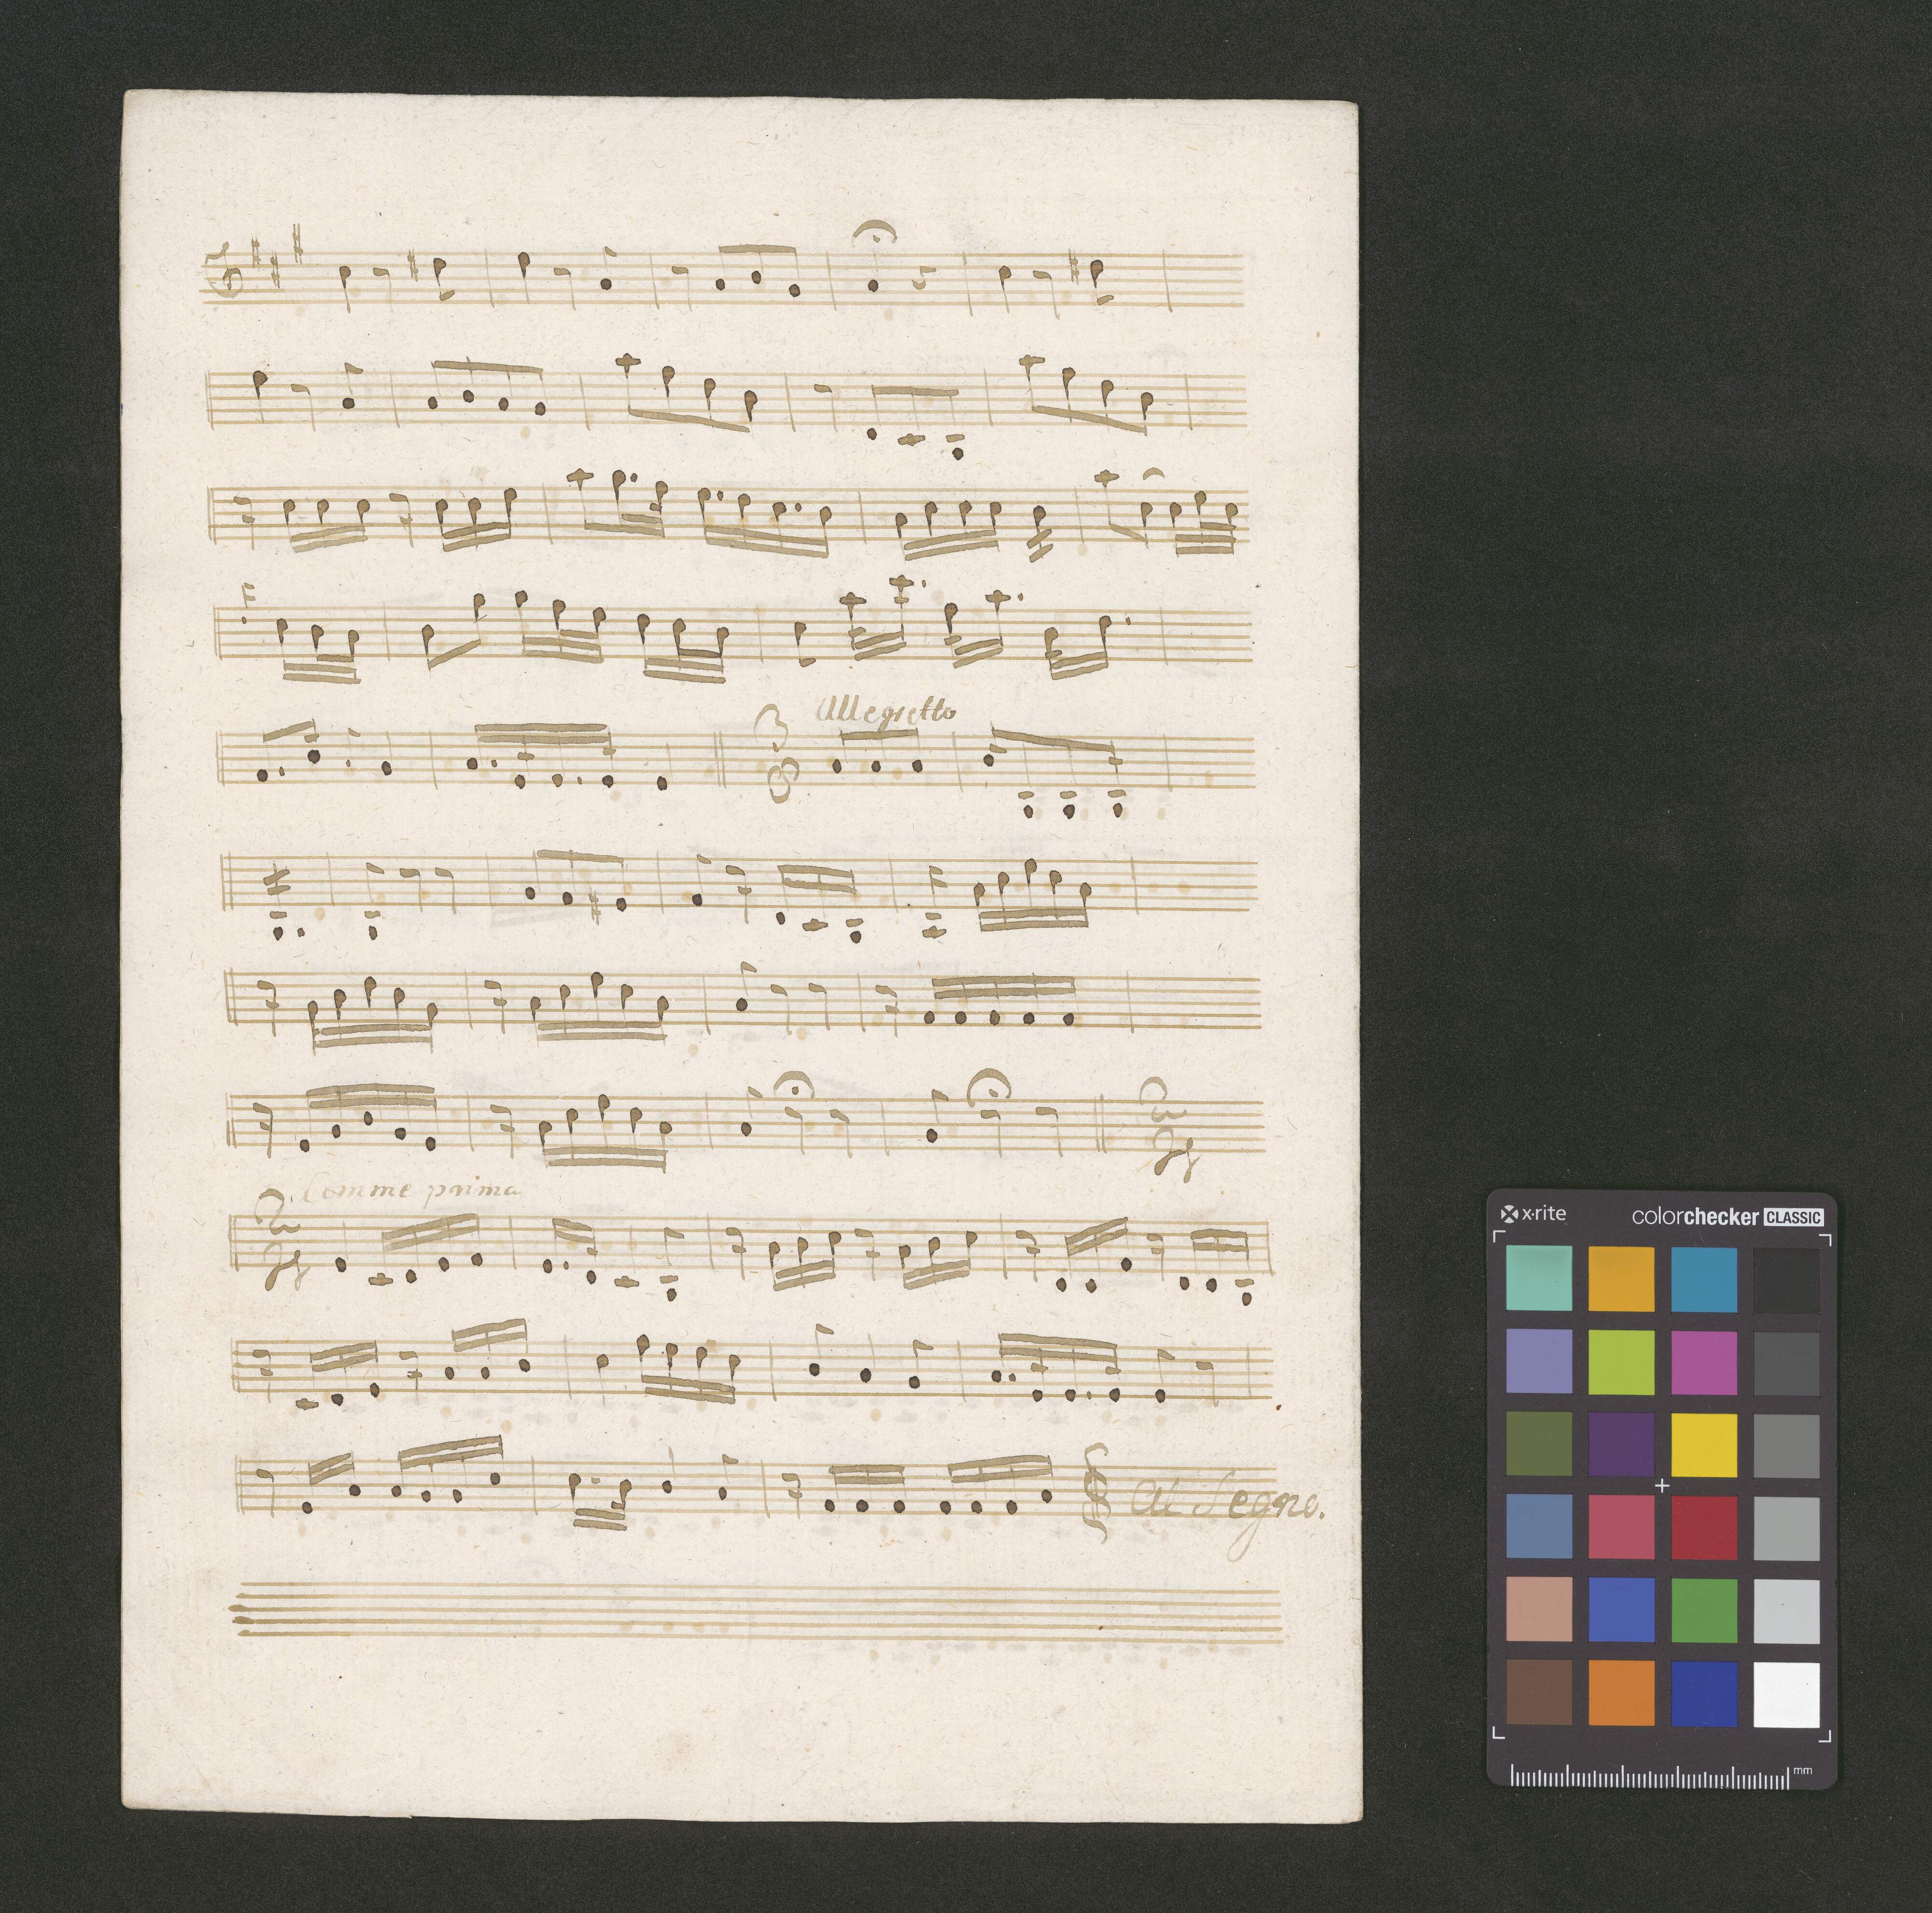 Allegretto
3
8
2
4
2
4
Comme prima
al Segno.
x·rite colorchecker CLASSIC
mm